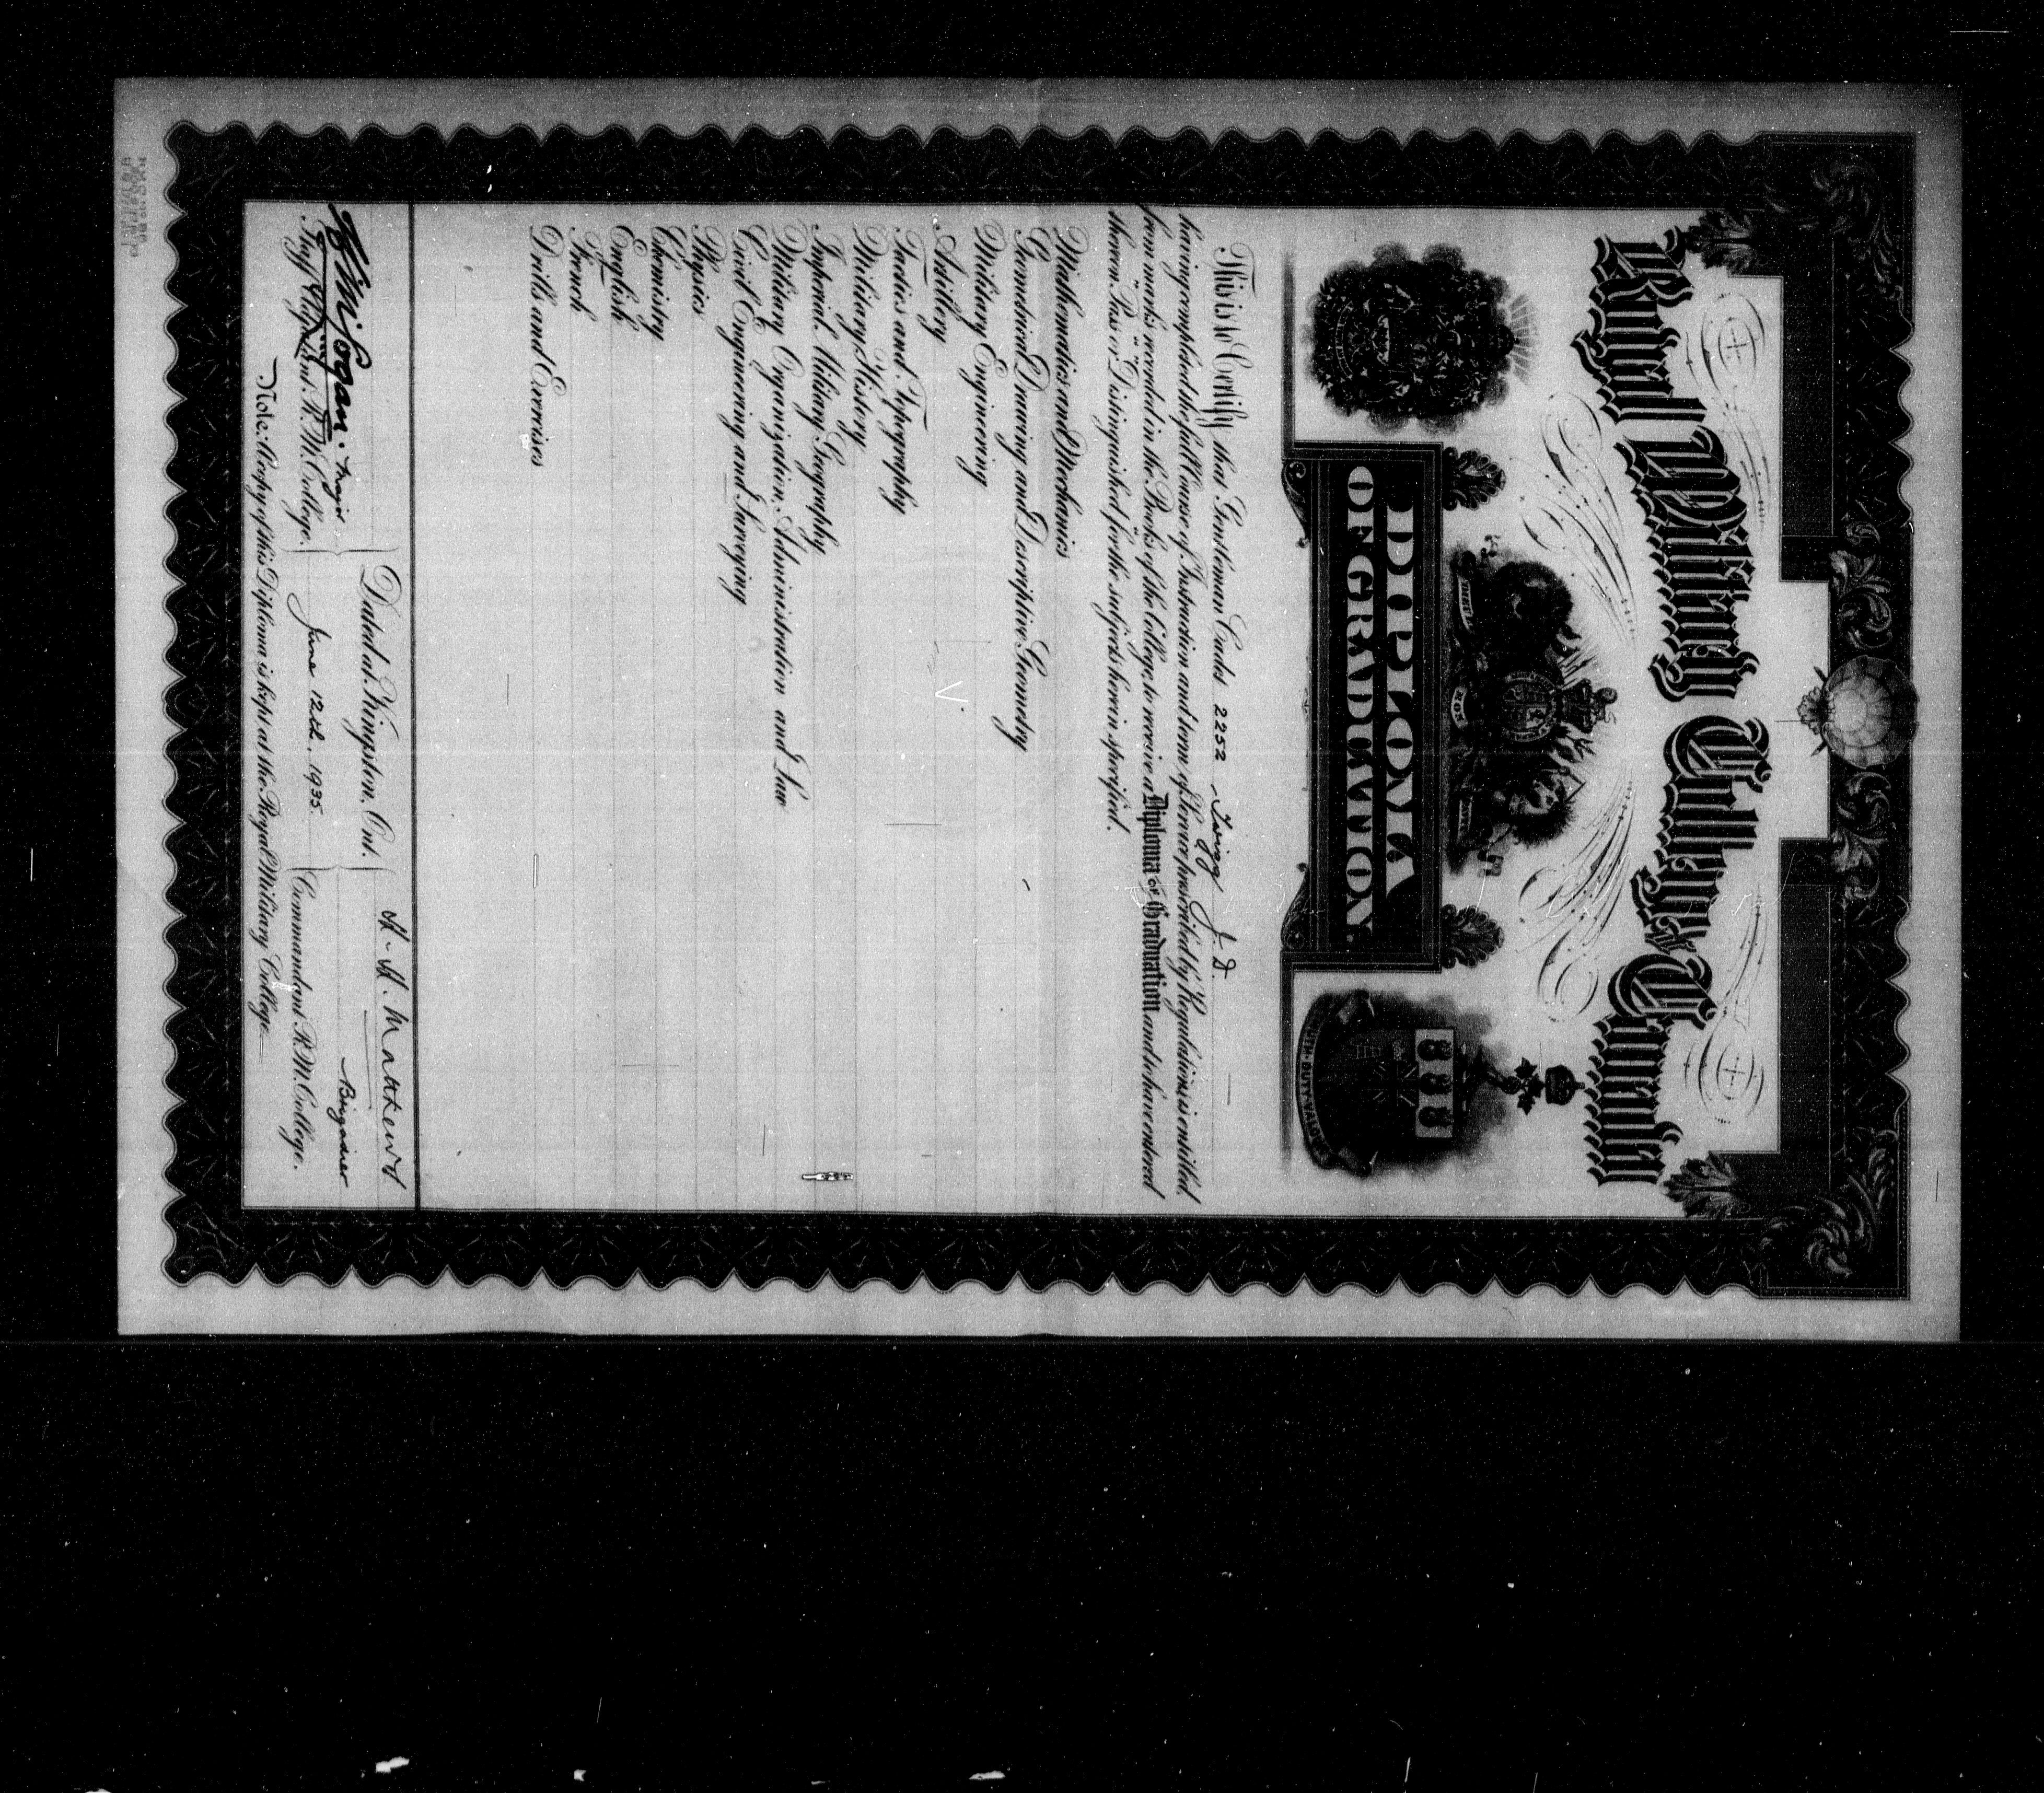 Royal Military College, Canada
DIPLOMA
OF GRADUATION.
TRUTH · DUTY · VALOUR
This is to Certify that Gentleman Cadet 2252 Twigg J. D.
having completed the full Course of Instruction and term of Service prescribed by Regulations is entitled,
from marks recorded in the Books of the College, to receive a Diploma of Graduation and to have entered
thereon "Pass" or "Distinguished" for the subjects herein specified.
Mathematics and Mechanics
Geometrical Drawing and Descriptive Geometry
Military Engineering
Artillery
Tactics and Topography
Military History
Imperial Military Geography
Military Organization, Administration and Law
Civil Engineering and Surveying
Physics
Chemistry
English
French
Drills and Exercises
Logan. Major
Staff Adjutant R. M. College.
Dated at Kingston, Ont.
June 12th 1935
H. H. Matthews
Brigadier
Commandant R. M. College.
Note: A copy of this Diploma is kept at the Royal Military College